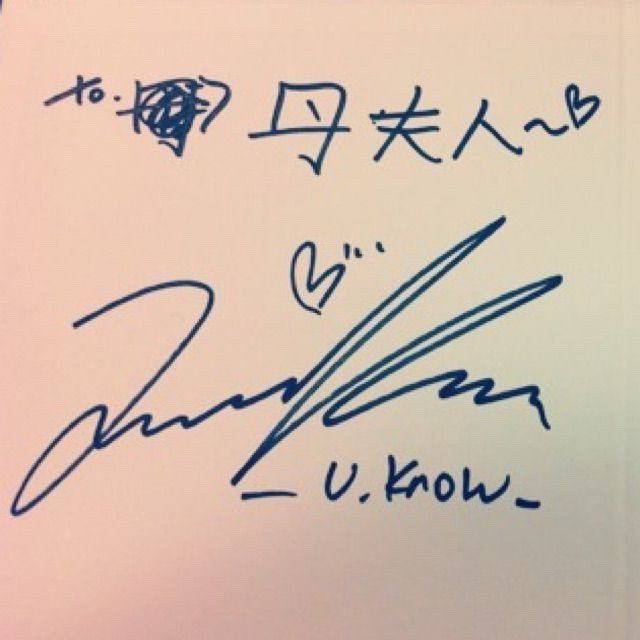 to. 母夫人~♡
-U.Know-